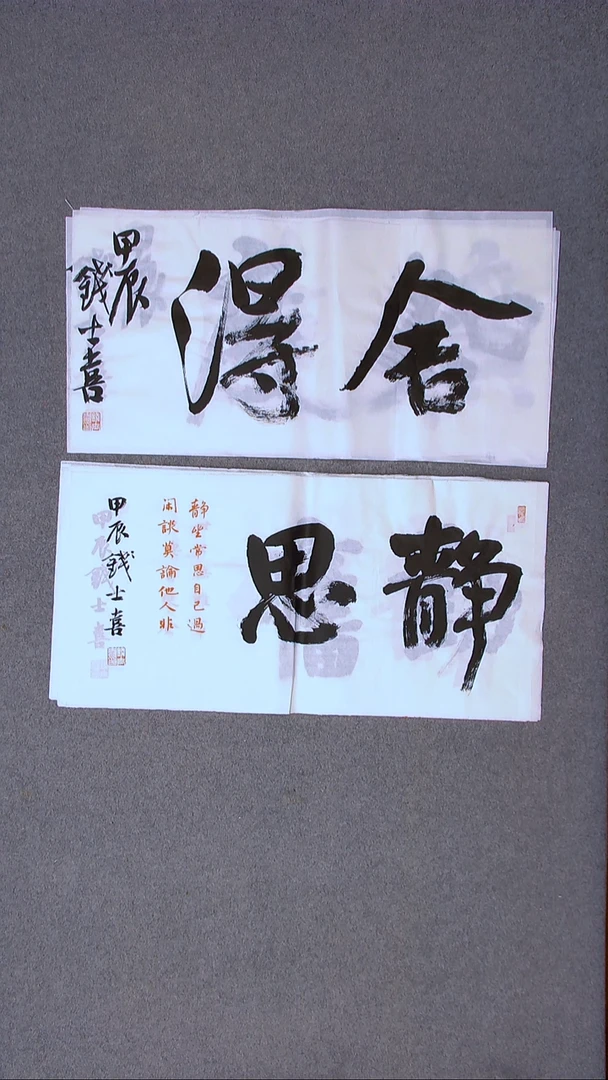 舍得
甲辰
錢士喜
静思
静坐常思自己過
闲談莫論他人非
甲辰錢士喜